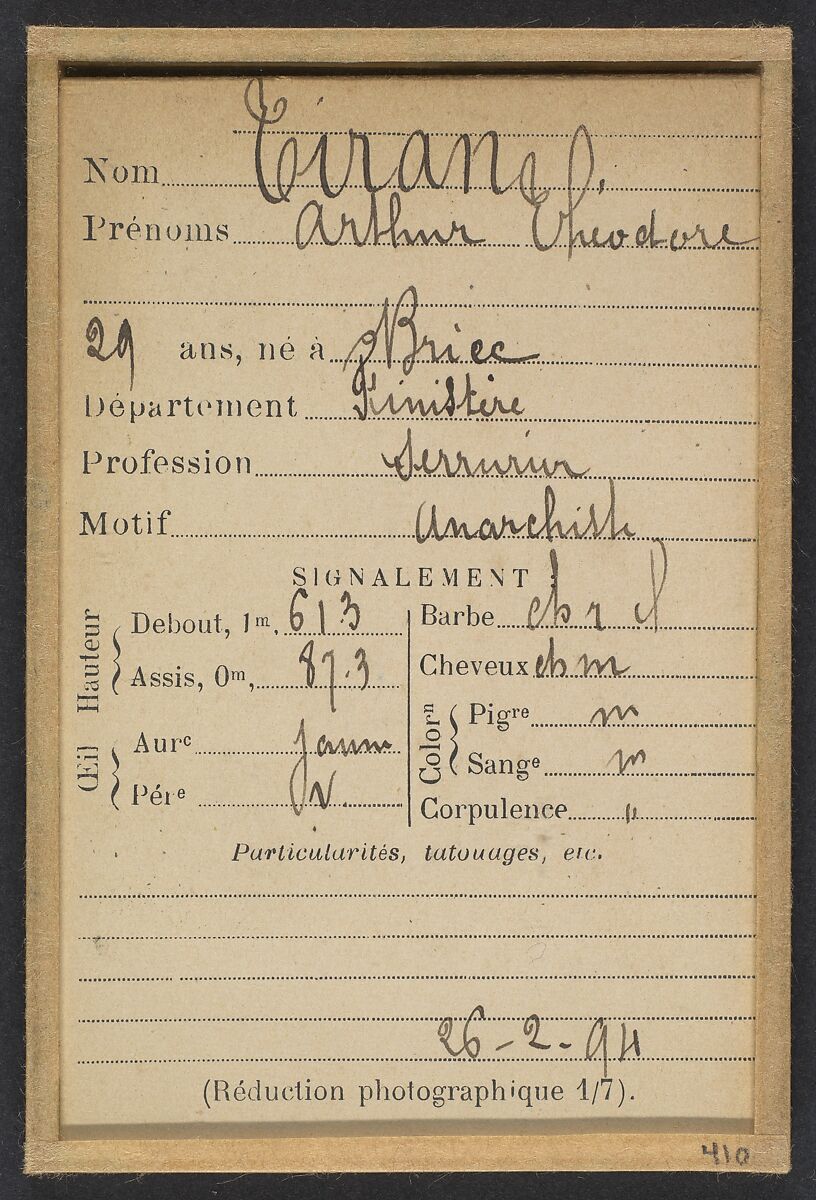 Nom Tirand.
Prénoms Arthur Théodore
29 ans, né à Briec
Département Finistère
Profession Serrurier
Motif Anarchiste
SIGNALEMENT :
Hauteur
Debout, 1m, 61.3
Assis, 0m, 87.3
Œil
Aurᵉ jaune
Périᵉ v.
Barbe ch r
Cheveux ch m
Colorⁿ
Pigʳᵉ m
Sangᵉ m
Corpulence "
Particularités, tatouages, etc.
26-2-94
(Réduction photographique 1/7).
410